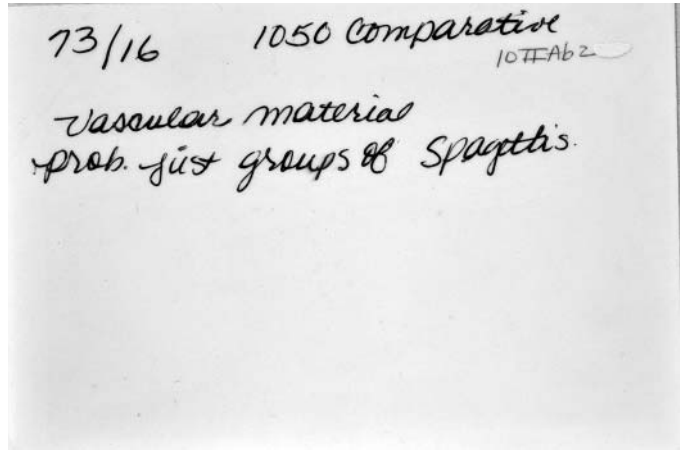 73/16 1050 Comparative
10IIAb2
Vascular material
prob. just groups of Spagttis.